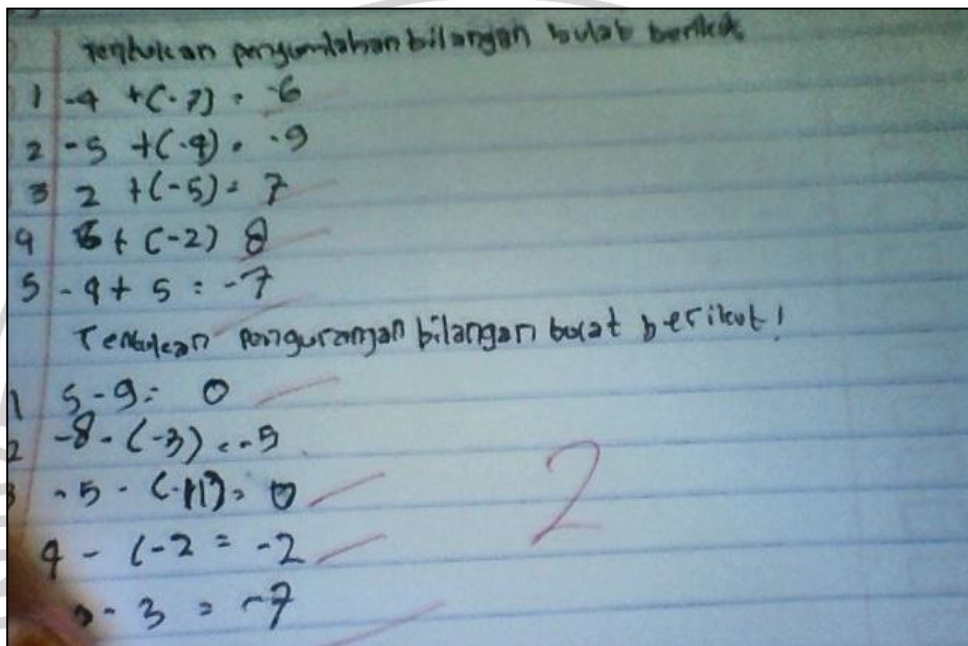 Tentukan pengumlahan bilangan bulat berikut
1 -4 + (-7) = -6
2 -5 + (-4) = -9
3 2 + (-5) = 7
4 6 + (-2) 8
5 -4 + 5 = -7
Tentukan pengurangan bilangan bulat berikut!
1 5 - 9 = 0
2 -8 - (-3) = -5
3 -5 - (-11) = 0
4 - (-2 = -2
- 3 = -7
2